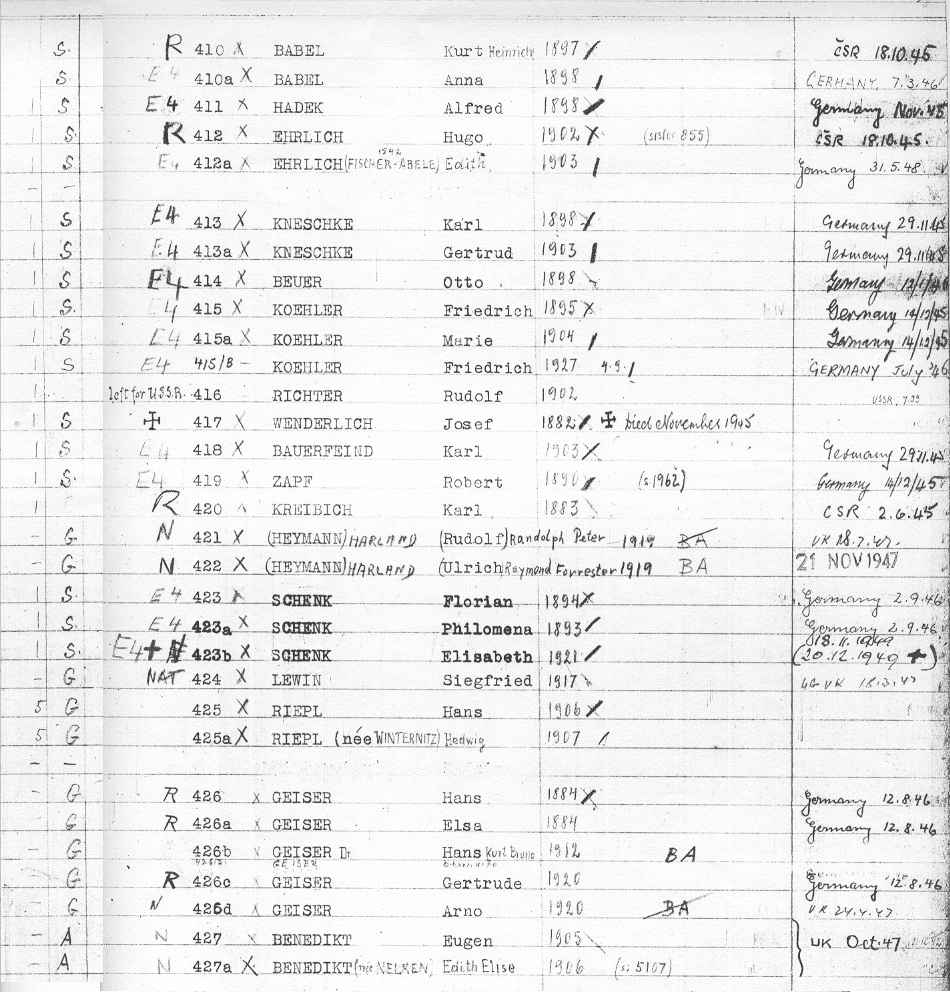 S. R 410 X BABEL Kurt Heinrich 1897 ČSR 18.10.45
S. E4 410a X BABEL Anna 1898 GERMANY, 7.3.46
1 S E4 411 X HADEK Alfred 1898 Germany Nov.
1 S. R 412 X EHRLICH Hugo 1902 X (sister 855) ČSR 18.10.45.
1 S E4 412a X EHRLICH (FISCHER-ABELE) Edith 1903 Germany 31.5.48.
- -
S E4 413 X KNESCHKE Karl 1898 Germany 29.11.45
1 S. E4 413a X KNESCHKE Gertrud 1903 Germany 29.11.45
1 S E4 414 X BEUER Otto 1898 Germany
1 S. E4 415 X KOEHLER Friedrich 1895 X Germany 14/12/45
1 S E4 415a X KOEHLER Marie 1904 Germany 14/12/45
1 S E4 415/B - KOEHLER Friedrich 1927 4.9. GERMANY July '46
1 left for USSR. 416 RICHTER Rudolf 1902 USSR,
1 S ✠ 417 X WENDERLICH Josef 1882 ✠ Died November 1945
1 S E4 418 X BAUERFEIND Karl 1903 X Germany 29.11.45
1 S. E4 419 X ZAPF Robert 1890 (s.1962) Germany 14/12/45
1 R 420 KREIBICH Karl 1883 CSR 2.6.45
- G N 421 X (HEYMANN) HARLAND (Rudolf) Randolph Peter 1919 BA UK
- G N 422 X (HEYMANN) HARLAND (Ulrich) Raymond Forrester 1919 BA 21 NOV 1947
1 S. E4 423 SCHENK Florian 1894 X Germany 2.9.46
1 S. E4 423a X SCHENK Philomena 1893 Germany 2.9.46
1 S. E4 + N 423b X SCHENK Elisabeth 1921 18.11.1949 (20.12.1949 +)
- G NAT 424 X LEWIN Siegfried 1917 UK 18.3.47
5 G 425 X RIEPL Hans 1906 X
5 G 425a X RIEPL (née WINTERNITZ) Hedwig 1907
- -
- G R 426 X GEISER Hans 1884 X Germany 12.8.46
G R 426a X GEISER Elsa 1884 Germany 12.8.46
- G 426b X GEISER Dr Hans Kurt Bruno 1912 BA
G R 426c X GEISER Gertrude 1920 Germany 12.8.46
- G N 426d X GEISER Arno 1920 BA UK 24.4.47
- A N 427 X BENEDIKT Eugen 1905 UK Oct.47
- A N 427a X BENEDIKT (née NELKEN) Edith Elise 1906 (s. 5107)